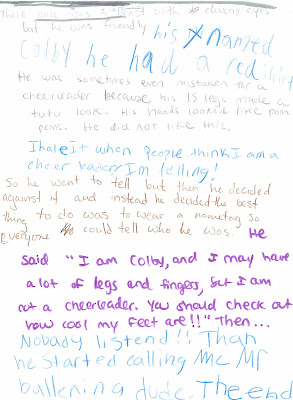 There once was a beast with eleven eyes
but he was friendly his named
Colby he had a red shirt
He was sometimes even mistaken for a
cheerleader because his 15 legs made a
tutu look. His hands looked like pom
poms. He did not like this.
I hate it when people think I am a
cheer leader I'm telling!
So he went to tell but then he decided
against it and instead he decided the best
thing to do was to wear a nametag so
everyone could tell who he was. He
said "I am Colby, and I may have
a lot of legs and fingers, but I am
not a cheerleader. You should check out
how cool my feet are!!" Then...
Nobody listend!! Than
he started calling Mc Mr
ballerina dude. The end